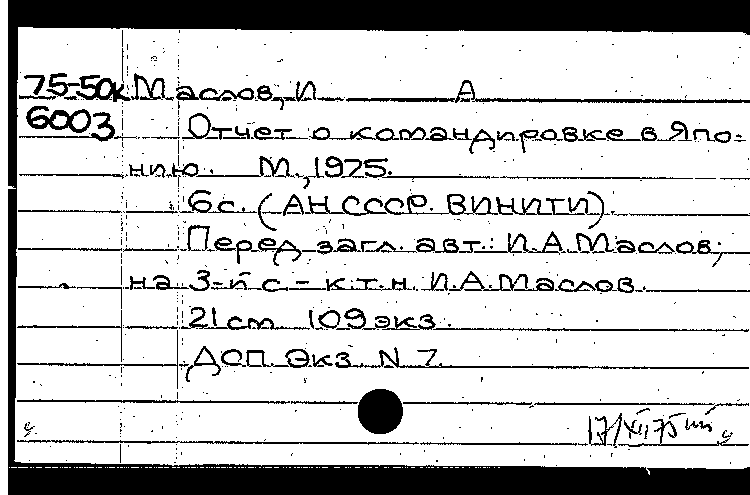 75-50к Маслов, И А
6003 Отчет о командировке в Япо=
нию. М., 1975.
6с. (АН СССР. ВИНИТИ).
Перед загл. авт.: И.А.Маслов;
на 3-й с – к.т.н. И.А.Маслов.
21 см 109 экз.
Доп. Экз. N 7.
17/XII 75